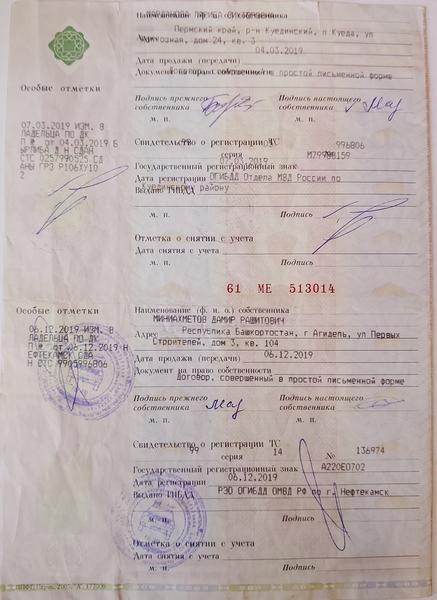 Наименование (ф. и. о.) собственника
Пермский край, р-н Куединский, п Куеда, ул
дом 24, кв. 3
04.03.2019
Дата продажи (передачи)
Документ на право собственности
в простой письменной форме
Особые отметки
Подпись прежнего собственника
Подпись настоящего собственника
07.03.2019 ИЗМ. В
ЛАДЕЛЬЦА ПО ДК
П № от 04.03.2019 Б
СТС
АНЫ ГРЗ Р106ХУ10
2
м. п.
м. п.
Свидетельство о регистрации ТС
99
996806
серия
Государственный регистрационный знак
07.03.2019
Дата регистрации
ОГИБДД Отдела МВД России по
Выдано ГИБДД
Куединскому району
м. п.
Подпись
Отметка о снятии с учета
Дата снятия с учета
м. п.
Подпись
61 МЕ 513014
Особые отметки
Наименование (ф. и. о.) собственника
МИНИАХМЕТОВ ДАМИР РАШИТОВИЧ
06.12.2019 ИЗМ. В
ЛАДЕЛЬЦА ПО ДК
П № от 06.12.2019 Н
ЕФТЕКАМСК СДА
Н СТС 9905996806
Адрес
Республика Башкортостан, г Агидель, ул Первых
Строителей, дом 3, кв. 104
Дата продажи (передачи)
06.12.2019
Документ на право собственности
Договор, совершенный в простой письменной форме
Подпись прежнего собственника
Подпись настоящего собственника
м. п.
м. п.
Свидетельство о регистрации ТС
99
14
№
136974
серия
Государственный регистрационный знак
А220ЕО702
Дата регистрации
06.12.2019
Выдано ГИБДД
РЭО ОГИБДД ОМВД РФ по г. Нефтекамск
м. п.
Подпись
Отметка о снятии с учета
Дата снятия с учета
м. п.
Подпись